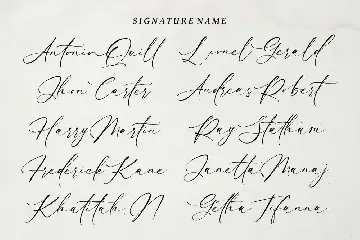 SIGNATURE NAME
Antonio Quill Lionel Gerald
Jhon Carter Andreas Robert
Harry Martin Ray Statham
Frederick Kane Janetta Manaj
Khatitah. N Getha Tifanna